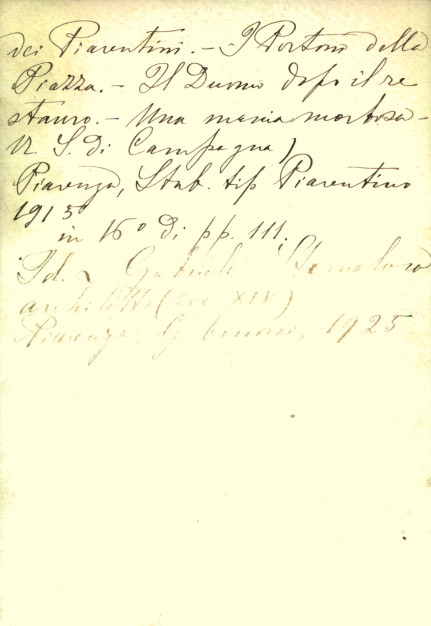 dei Piacentini. - I Portoni della
Piazza. - Il Duomo dopo il re
stauro. - Una mania morbosa -
VI. S. di Campagna)
Piacenza, Stab. tip Piacentino
1915
in 16° di pp. 111.
Id. -
architetto (sec XIV)
Piacenza, 1925